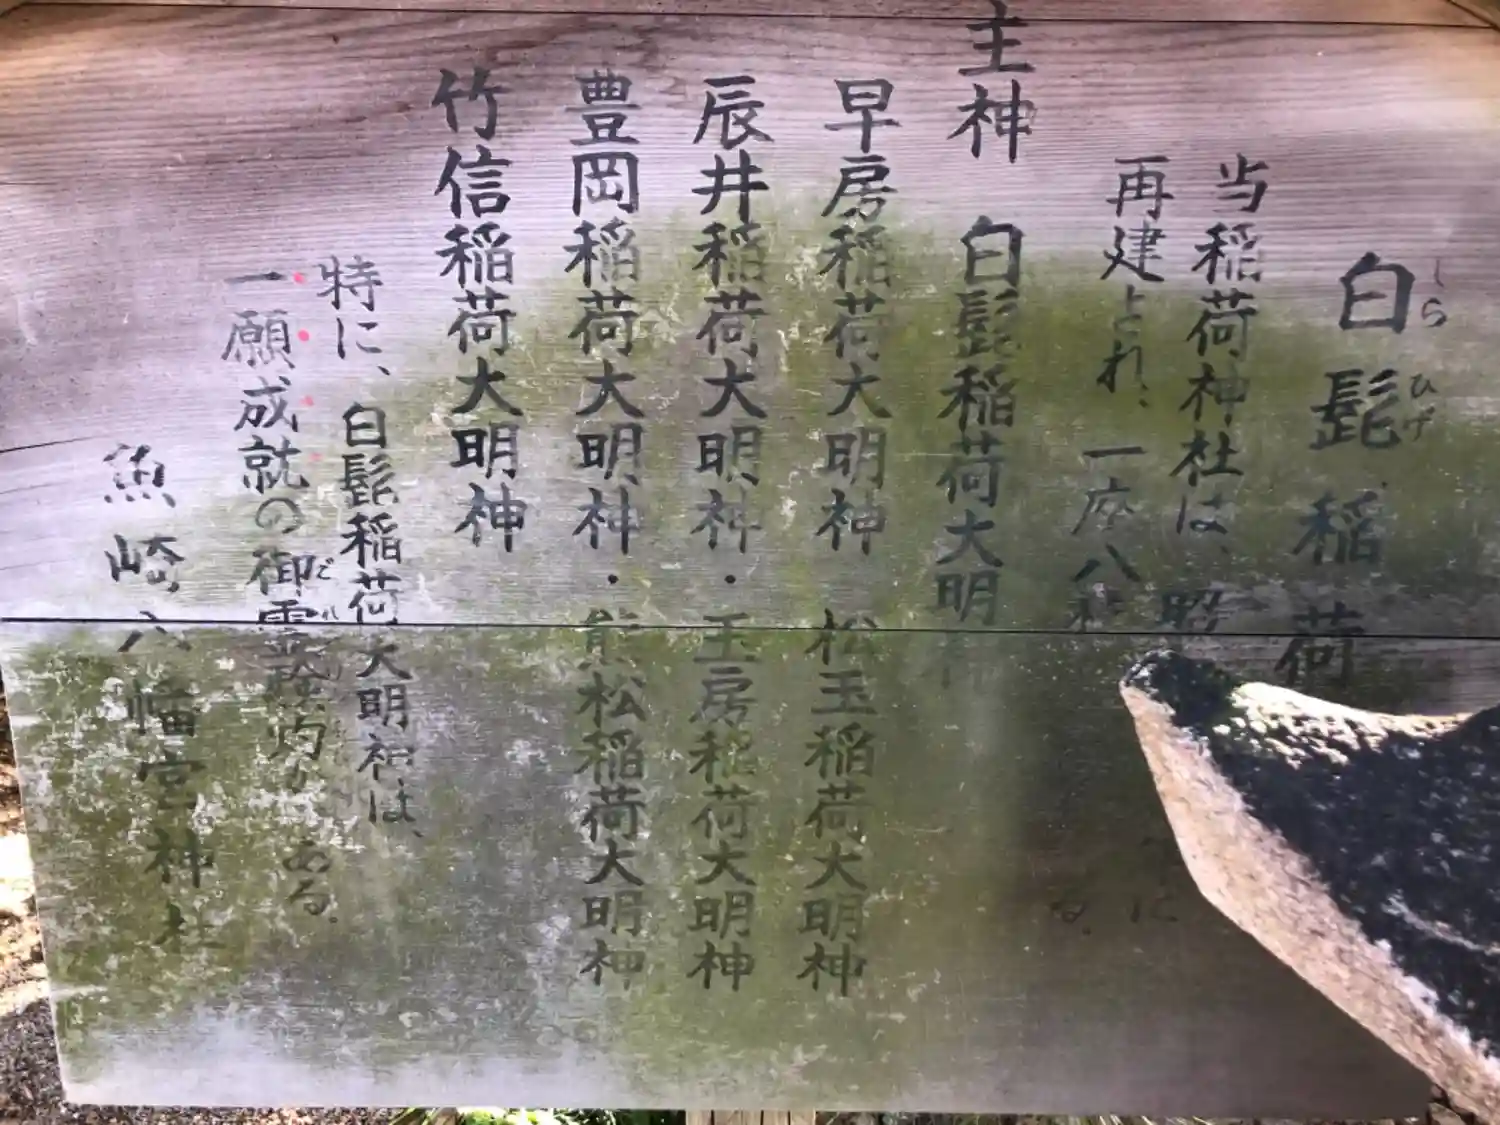 白髭稲荷
しらひげ
当稲荷神社は、昭
に
再建され、一座八
る。
主神 白髭稲荷大明神
早房稲荷大明神 松玉稲荷大明神
辰井稲荷大明神・玉房稲荷大明神
豊岡稲荷大明神・熊松稲荷大明神
竹信稲荷大明神
特に、白髭稲荷大明神は、
一願成就の御霊験灼かである。
魚崎八幡宮神社